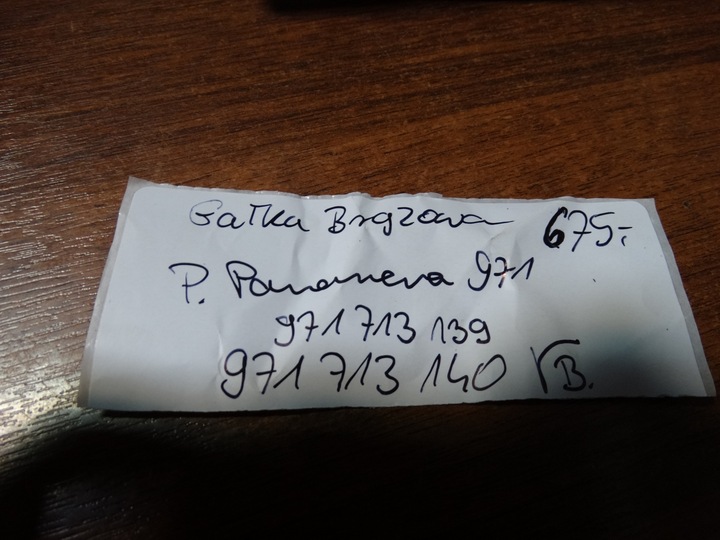 Gałka Brązowa 675,-
P. 971
971 713 139
971 713 140 VB.